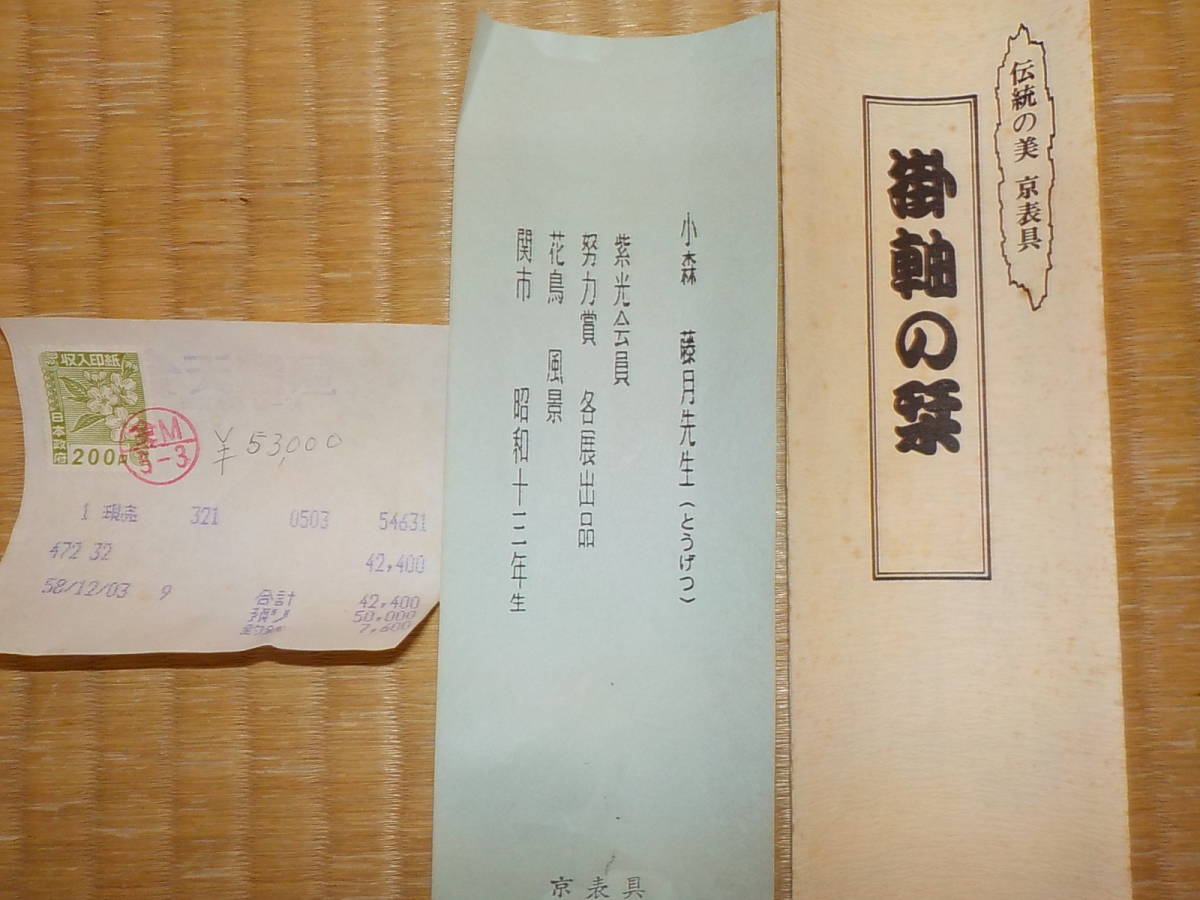 伝統の美 京表具
掛軸の栞
小森 藤月先生(とうげつ)
紫光会員
努力賞 各展出品
花鳥 風景
関市 昭和十三年生
京表具
収入印紙
日本政府
200円
M
9-3
¥53,000
1 現売 321 0503 54631
472 32
42,400
58/12/03 9
合計 42,400
預り 50,000
7,600